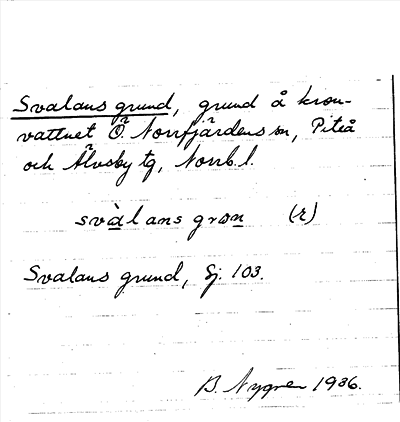 Svalans grund, grund å kron-
vattnet Ö. Norrfjärdens sn, Piteå
och Älvsby tg, Norrb. l.
svàlans gron (r)
Svalans grund, Sj. 103.
B. Nygren 1936.